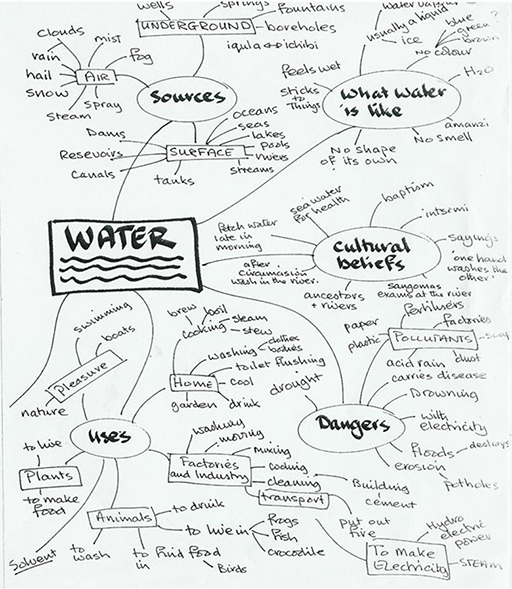 wells
springs
fountains
UNDERGROUND
boreholes
iqula ↔ ichibi
clouds
mist
rain
fog
hail
AIR
snow
spray
steam
Sources
oceans
seas
lakes
Dams
pools
Resevoirs
SURFACE
rivers
Canals
streams
tanks
usually a liquid
ice
blue
green
brown
?
No colour
feels wet
sticks
to
things
H2O
What water
is like
amanzi
No smell
No shape
of its own
WATER
fetch water
late in
morning
sea water
for health
baptism
intsmi
sayings
'one hand
washes the
other'
Cultural
beliefs
after
circumcision
wash in the river.
ancestors
+ rivers
sangomas
exams at the river
fertilisers
factories
paper
plastic
POLLUTANTS
soap
acid rain
dust
carries disease
drought
Drowning
with
electricity
Dangers
floods
destroys
erosion
potholes
swimming
boats
Pleasure
nature
brew
boil
cooking
steam
stew
washing
clothes
bodies
toilet flushing
Home
cool
drink
garden
Uses
to live
Plants
to make
food
Solvent
washing
moving
mixing
Factories
and Industry
cooling
cleaning
transport
Building
cement
put out
fire
Hydro
electric
power
To Make
Electricity
STEAM
Animals
to drink
to live in
frogs
fish
crocodile
to
wash
to
find food
in
Birds